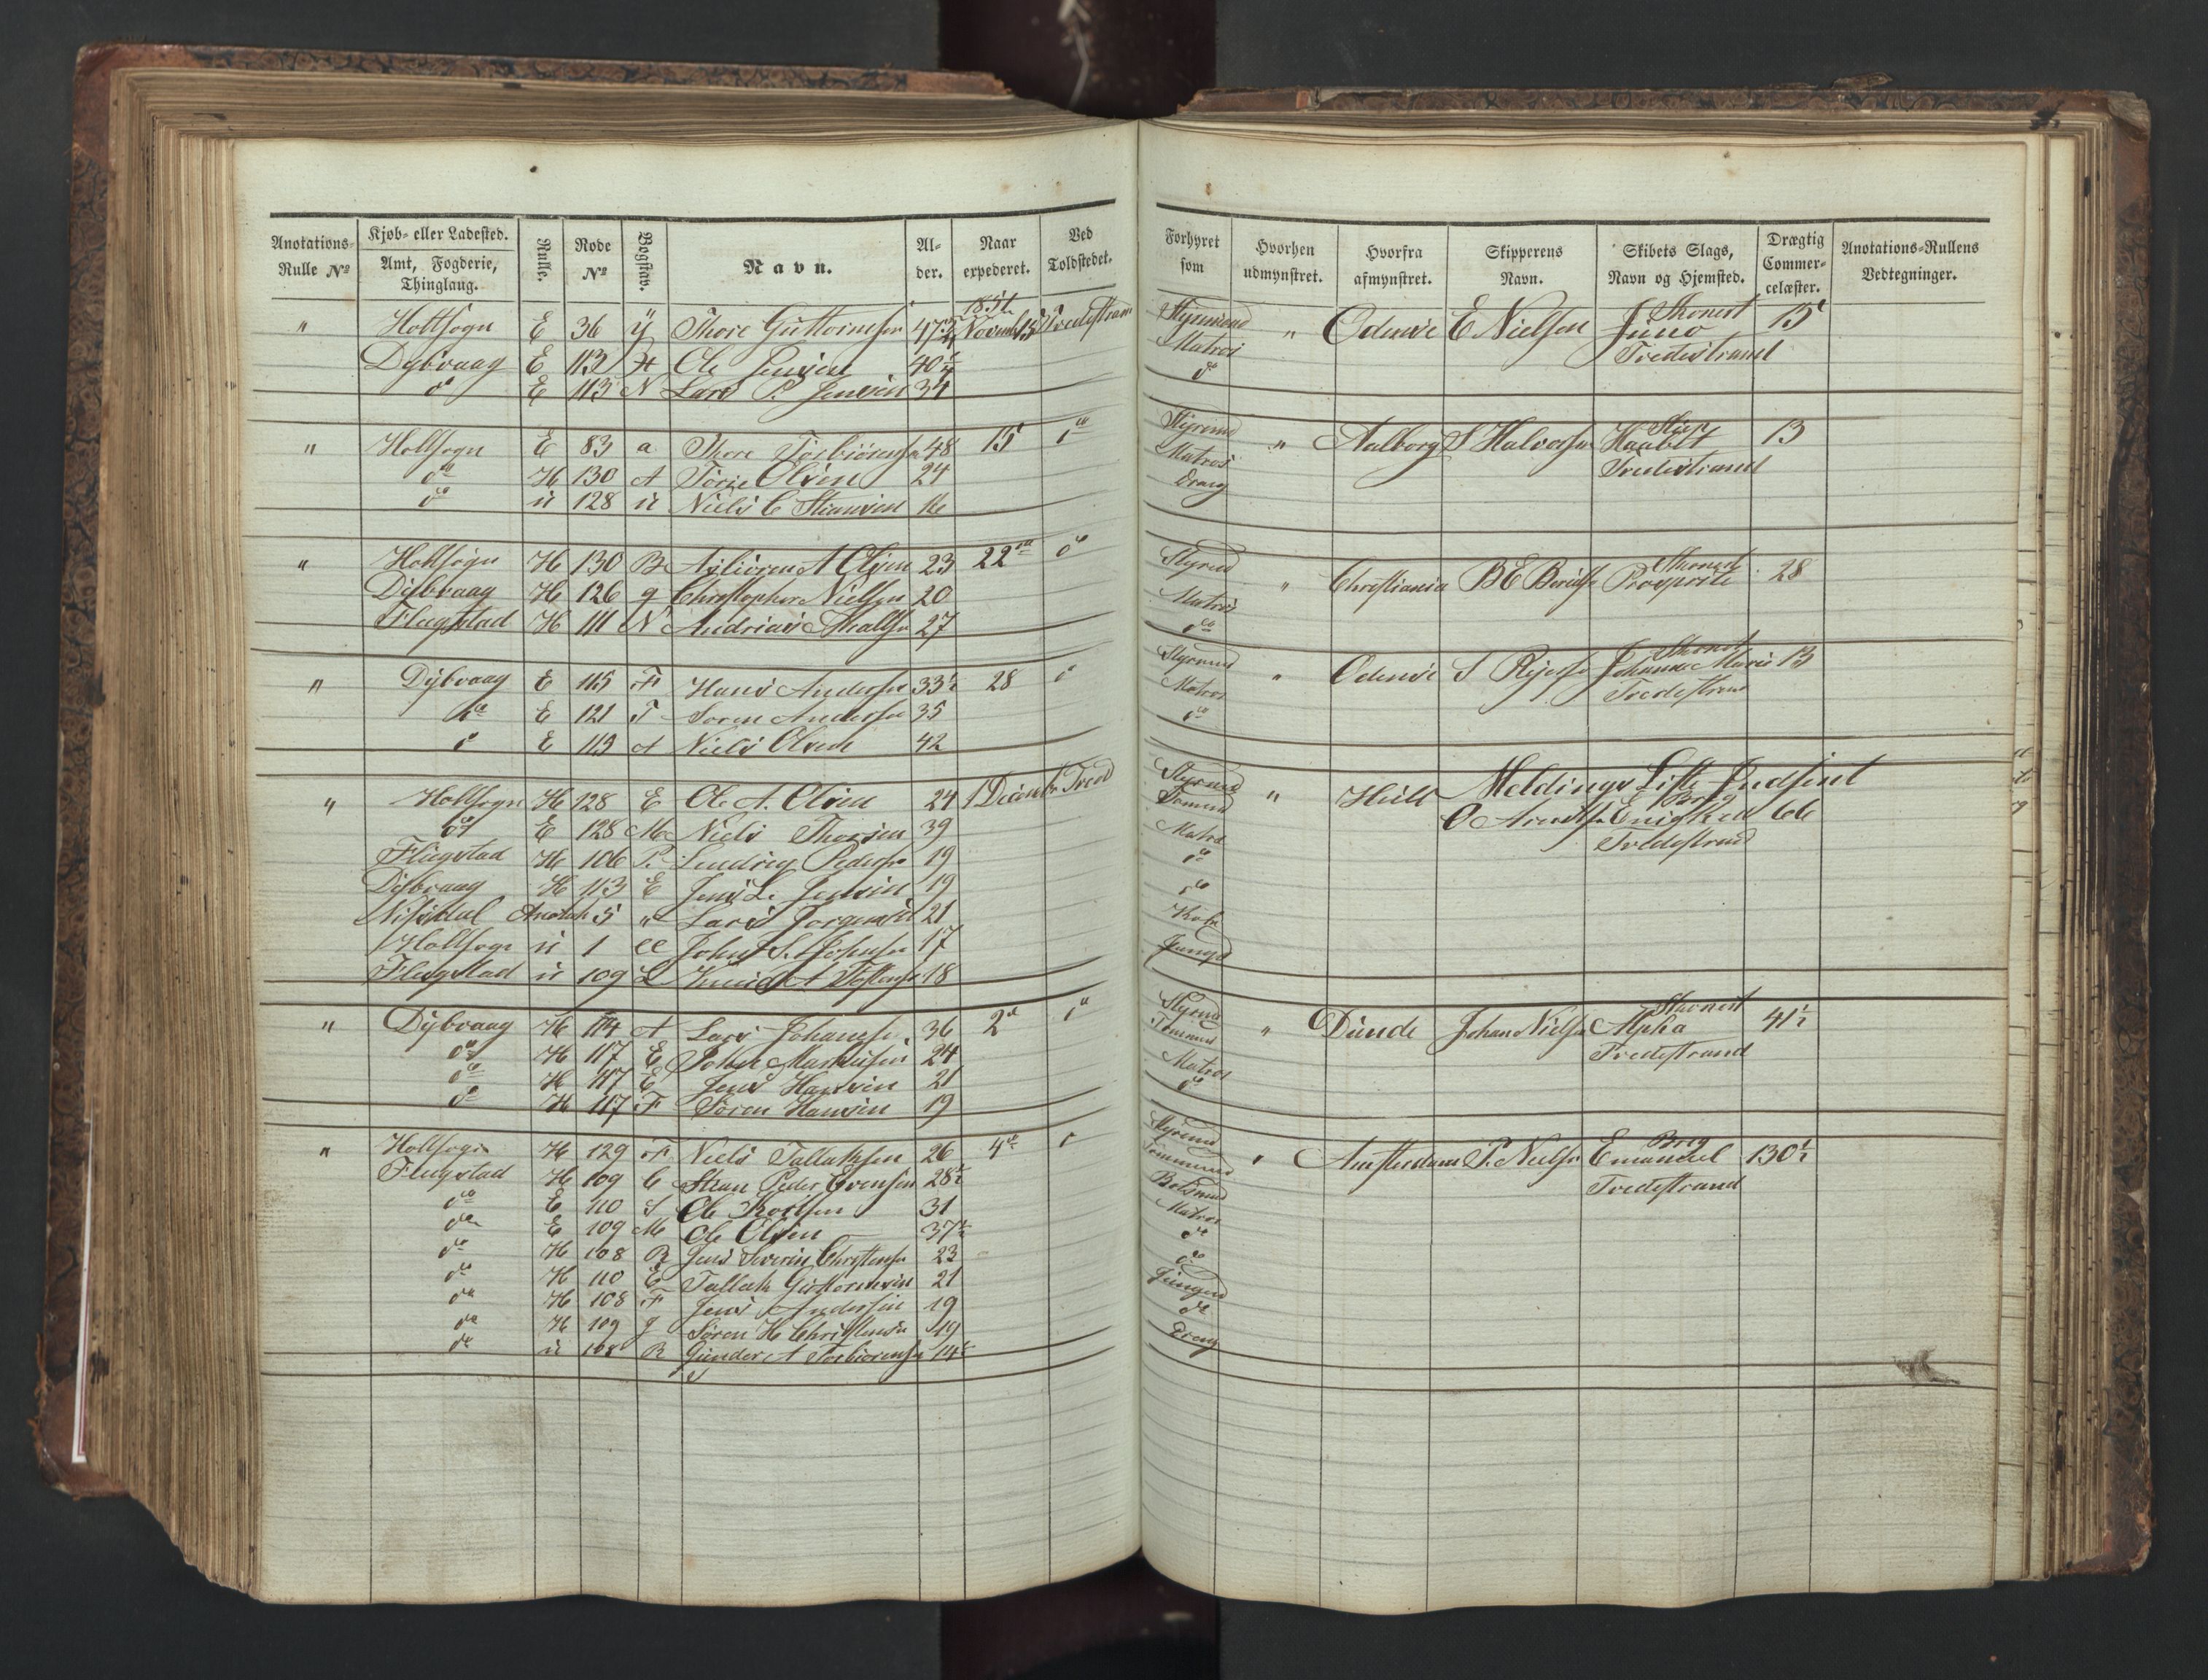 Anotations-Rulle No | Kjøb- eller Ladested. Amt, Fogderie, Thinglaug. | Rulle. | Rode No | Bogstav. | Navn. | Alder. | Naar expederet. | Ved Toldstedet. | Forhyret som | Hvorhen udmynstret. | Hvorfra afmynstret. | Skipperens Navn. | Skibets Slags, Navn og Hjemsted. | Drægtig Commercelæster. | Anotations-Rullens Vedtegninger.
" | Holtsogn | E | 36 | ÿ | Thore Guttormsen | 47 | 1851 Novemb 15 | Tvedestrand | Styrmand | " | Odense | E Nielsen | Skonert Juno Tvedestrand | 15
Dybvaag | E | 112 | H | Ole Jensen | 40½ | Matros
do | E | 113 | N | Lars P. Jensen | 34 | do
" | Holtsogn | E | 83 | a | Thore Torbiörensen | 48 | 15 | do | Styrmd | " | Aalborg | S Halvorsen | Slup Haabet Tvedestrand | 13
do | H | 130 | A | Torje Olsen | 24 | Matros
do | ü | 128 | ü | Niels C Stiansen | 16 | Dreng
" | Holtsogn | H | 130 | B | A Olsen | 23 | 22 | do | Styrmd | " | Christiania | B E Berntsen | Skonert Prosperite | 28
Dybvaag | H | 126 | g | Christopher Nielsen | 20 | Matros
Flagstad | H | 111 | N | Andreas | 27 | do
" | Dybvaag | E | 115 | F | Hans Andersen | 33½ | 28 | do | Styrmd | " | Odense | S | Skonert Johanne Marie Tvedestrand | 13
do | E | 121 | T | Soren Andersen | 35 | Matros
do | E | 119 | A | Niels Olsen | 42 | do
" | Holtsogn | H | 128 | E | Ole A. Olsen | 24 | 1 Decembr | Tvend | Styrmd | " | Hull | Meldings Liste Indsent
do | E | 128 | M | Niels Thorsen | 39 | Tømmd | O Arentsen | Brig Enighed Tvedestrand | 66
Flagstad | H | 106 | P. | Pedersen | 19 | Matros
Dybvaag | H | 113 | E | Jens L. Jensen | 19 | do
Nissedal | Anotat | 5 | " | Lars Jorgensen | 21 | do
Holtsogn | ü | 1 | ee | John S. Johnsen | 17 | Kok
Flagstad | ü | 109 | L | Knud A | 18 | Jungd
" | Dybvaag | H | 114 | A | Lars Johansen | 36 | 2 | do | Styrmd | " | Dunde | Johan Nielsen | Skonert Alpha Tvedestrand | 41½
do | H | 117 | E | Johan Markusen | 24 | Tømmd
do | H | 117 | E | Jens Hansen | 21 | Matros
do | H | 117 | F | Søren Hansen | 19 | do
" | Holtsogn | H | 129 | F | Niels Tallaksen | 26 | 4 | do | Styrmd | " | Amsterdam | P. Nielsen | Brig Emanuel Tvedestrand | 130½
Flagstad | H | 109 | C | Stian Peder Evensen | 28½ | Tømmermd
do | E | 110 | S | Ole | 31 | Botsmd
do | E | 109 | M | Ole Olsen | 37½ | Matros
do | H | 108 | R | Jens Severin Christensen | 23 | do
do | H | 110 | E | Tallak Guttormsen | 21 | do
do | H | 108 | F | Jens Andersen | 19 | Jungmd
do | H | 109 | g | Søren H Christensen | 19 | do
do | ü | 108 | R | Gunder A Torbiorensen | 14½ | Dreng